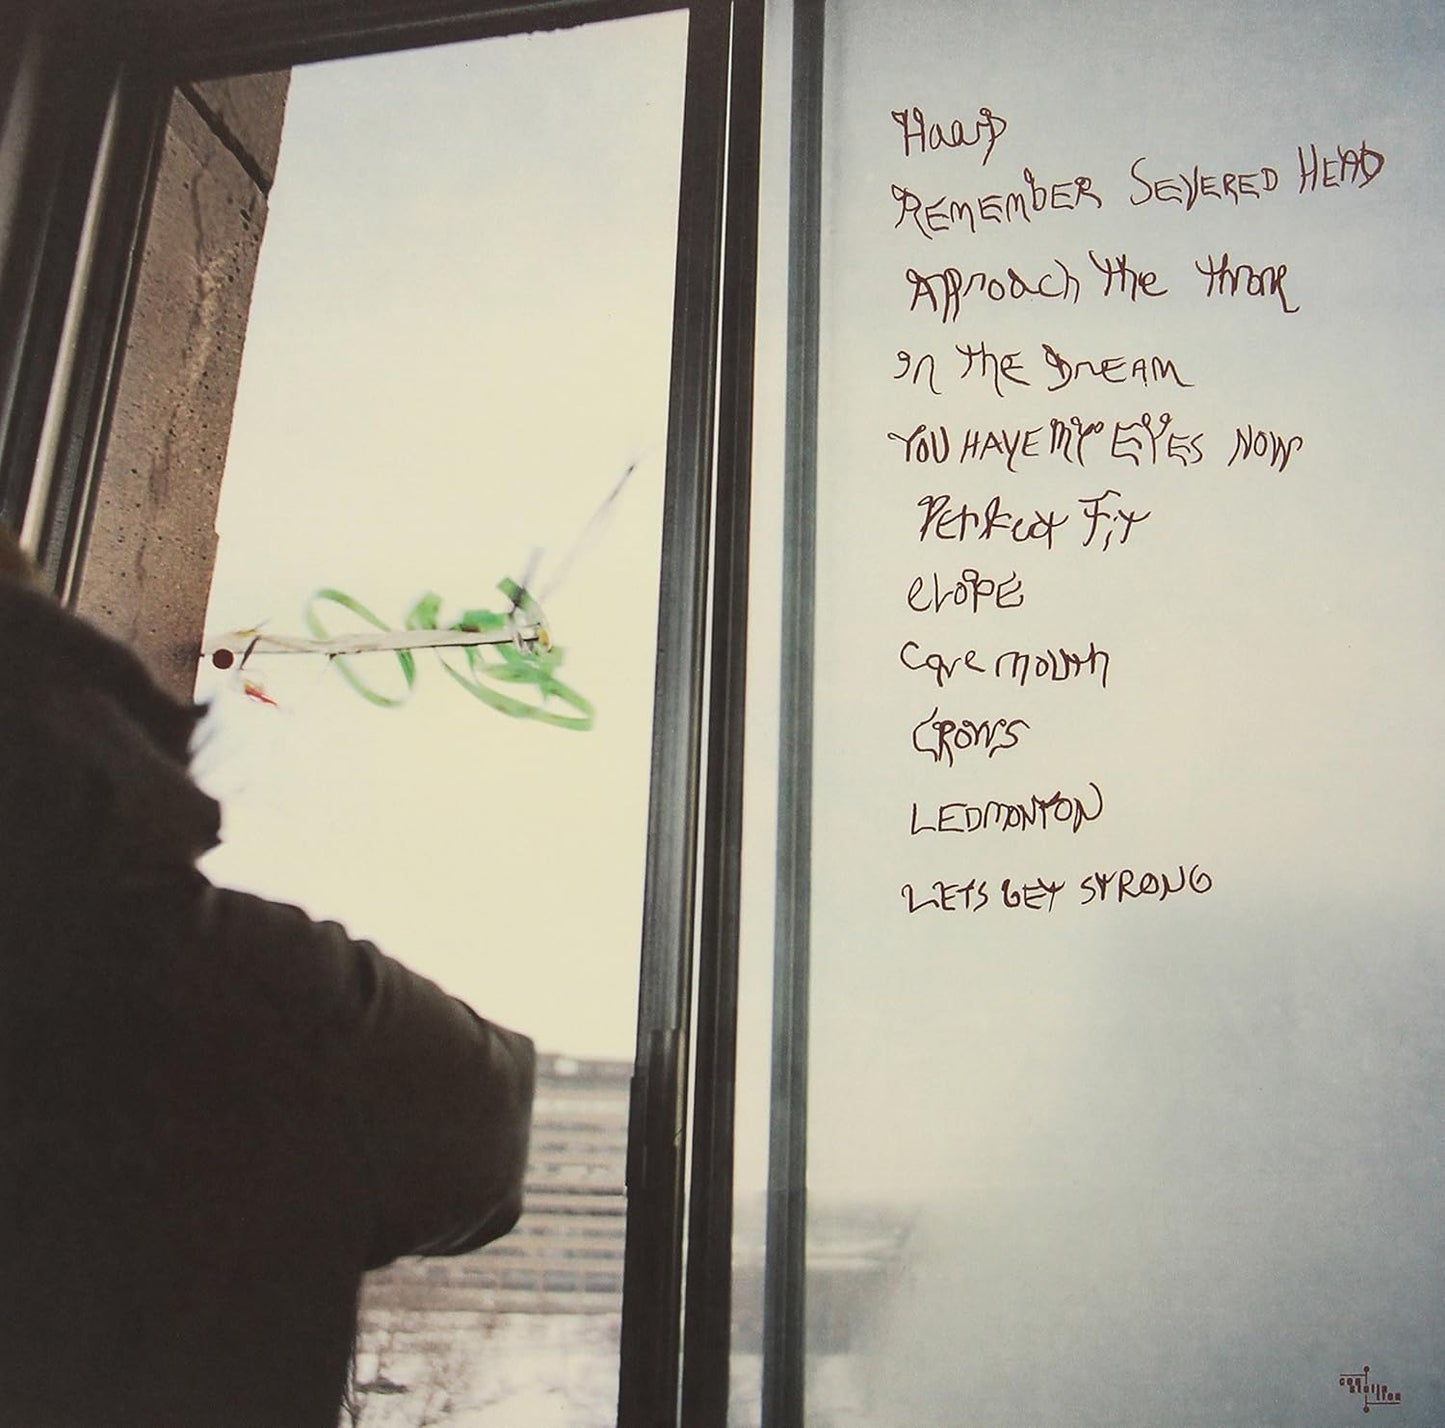 Haarp
REMEMBER SEVERED HEAD
Approach The Throne
In THE DREAM
YOU HAVE MY EYES NOW
Perfect Fit
elope
Cave mouth
CROWS
LEDMONTON
LETS GET STRONG
con
stella
tion